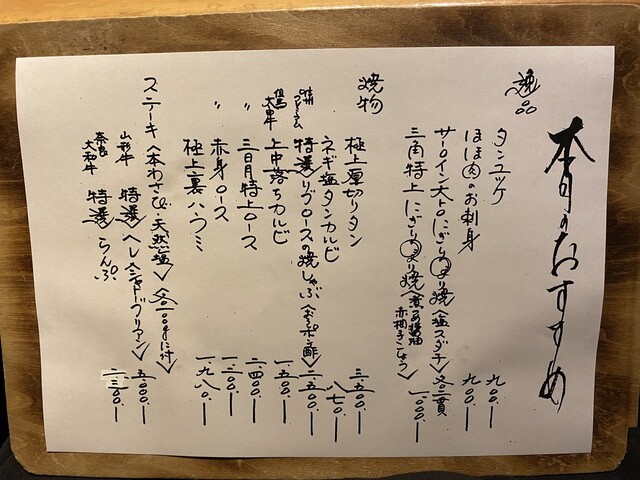 本日のおすすめ
逸品
タンユッケ 九〇〇.
ほほ肉のお刺身 九〇〇.
サーロイン大トロにぎり or 炙り焼〈塩スダチ〉各二貫
三角特上にぎり or 炙り焼〈煮つめ醤油 赤柚子こしょう〉 一、〇〇〇.
焼物
極上厚切りタン 三、五〇〇.
ネギ塩タンカルビ 八七〇.
特選リブロースの焼しゃぶ〈おろしポン酢〉 二、五〇〇.
但馬大黒 上中落ちカルビ 一、五〇〇.
〃 三日月特上ロース 二、四〇〇.
〃 赤身ロース 一、二〇〇.
極上裏ハラミ 一、九八〇.
ステーキ〈本わさび・天然塩〉〈各一〇〇gに付〉
山形牛 特選 ヘレ〈シャトーブリアン〉 五、〇〇〇.
奈良 大和牛 特選 らんぷ 二、三〇〇.